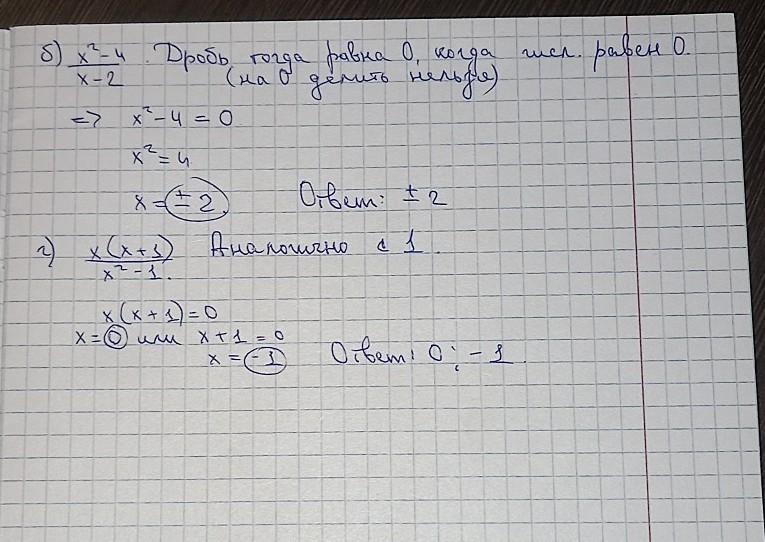 б) x²-4 / x-2 . Дробь тогда равна 0, когда числ. равен 0.
(на 0 делить нельзя)
=> x²-4=0
x²=4
x=±2. Ответ: ±2
г) x(x+1) / x²-1. Аналогично с 1.
x(x+1)=0
x=0 или x+1=0
x=-1 Ответ: 0; -1.